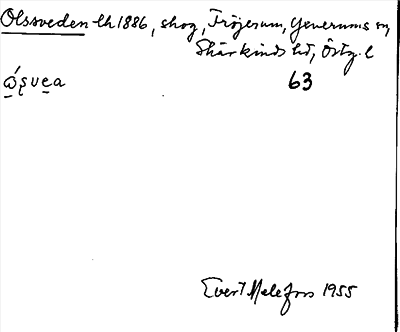 Olssveden lh 1886, skog, Fröjerum, Yxnerums sn
Skärkinds hd, Östg. l
63
Evert Melefors 1955